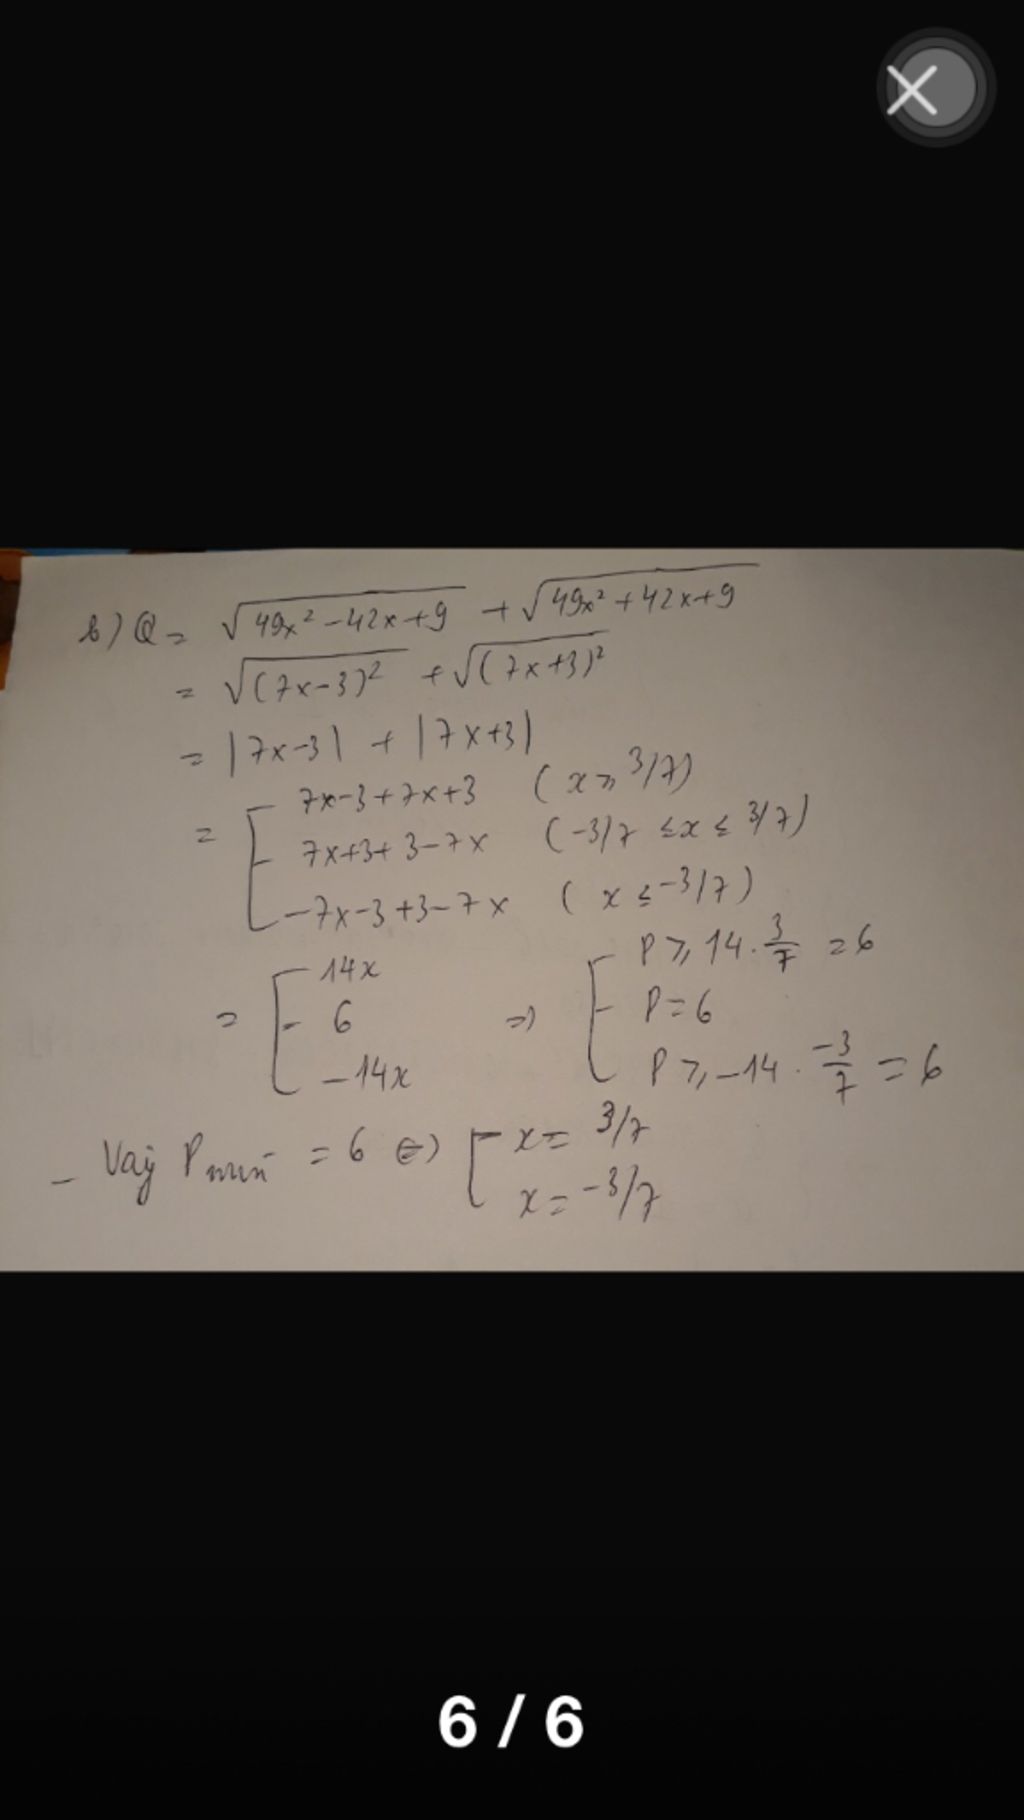 b) Q = √(49x² - 42x + 9) + √(49x² + 42x + 9)
= √((7x - 3)²) + √((7x + 3)²)
= |7x - 3| + |7x + 3|
= [ 7x - 3 + 7x + 3 (x ≥ 3/7)
7x + 3 + 3 - 7x (-3/7 ≤ x ≤ 3/7)
-7x - 3 + 3 - 7x (x ≤ -3/7)
= [ 14x ⇒ [ P ≥ 14 . 3/7 = 6
6 P = 6
-14x P ≥ -14 . -3/7 = 6
- Vậy P min = 6 ⇔ [ x = 3/7
x = -3/7
6 / 6